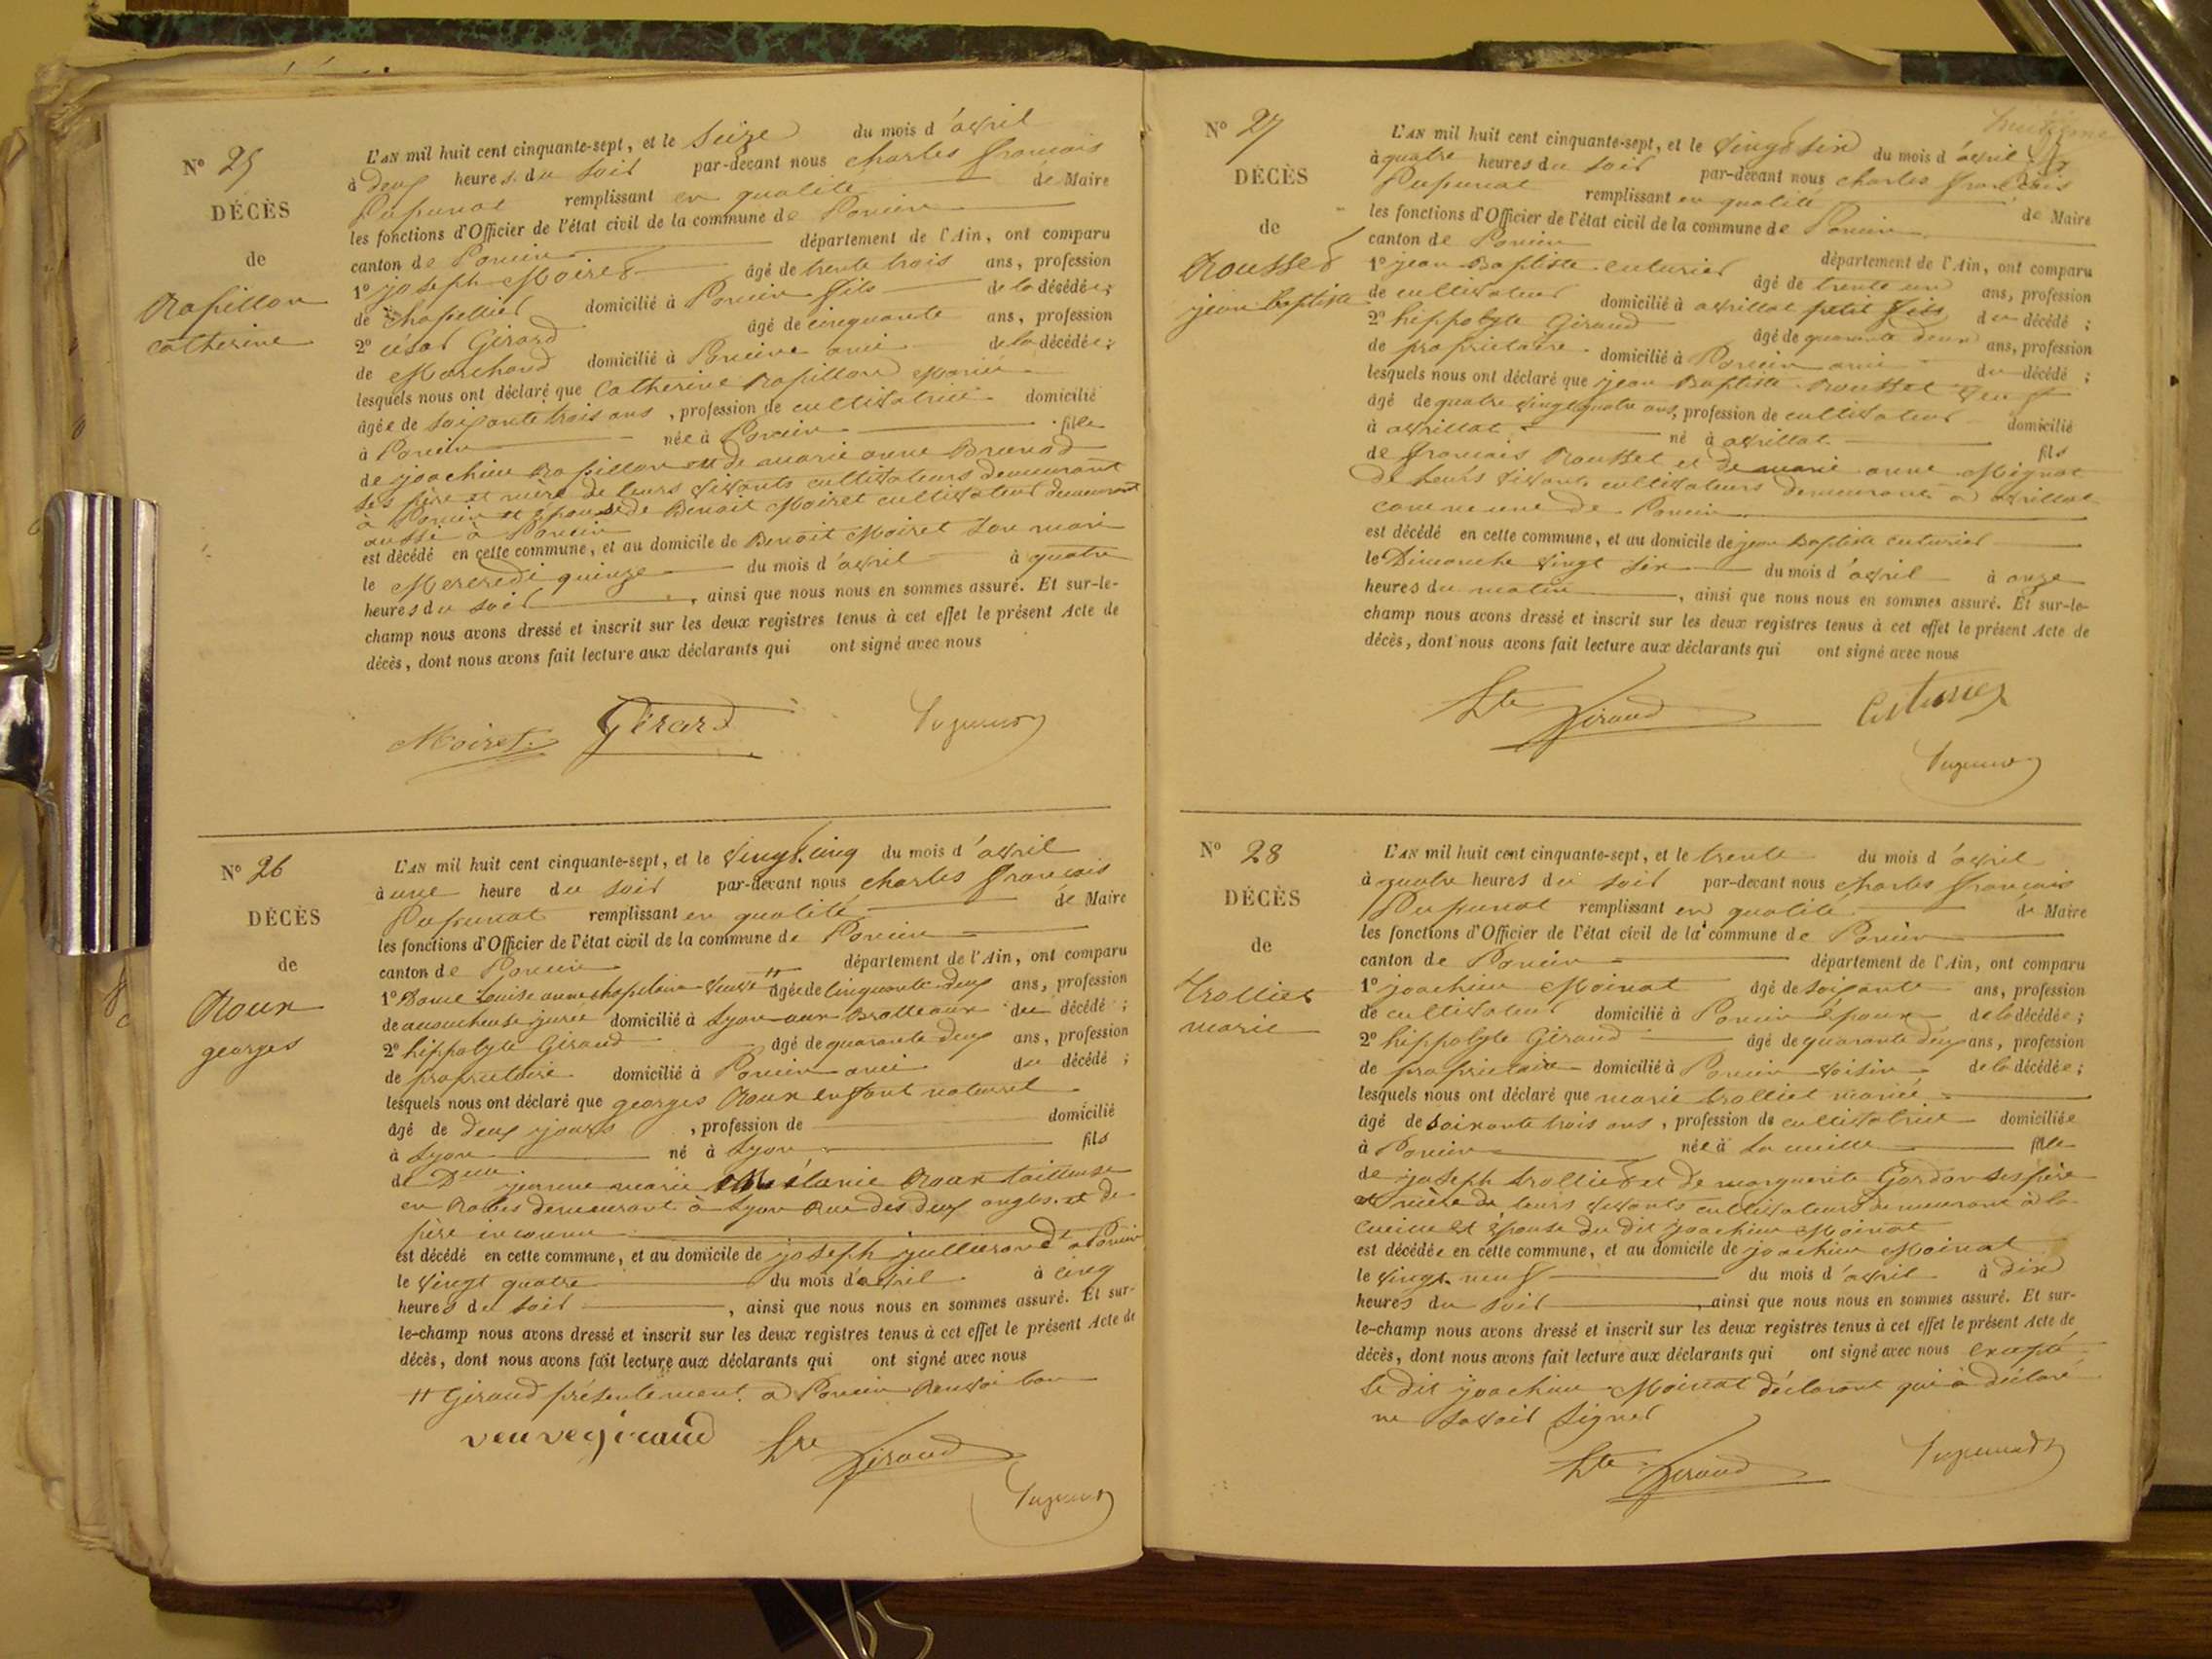 N° 25
DÉCÈS
de
Rapillon
catherine
L'AN mil huit cent cinquante-sept, et le Seize du mois d'avril
à deux heures du soir par-devant nous charles françois
Pupunat remplissant en qualité de Maire
les fonctions d'Officier de l'état civil de la commune de Poncin
canton de Poncin département de l'Ain, ont comparu
1° joseph Moiret âgé de trente trois ans, profession
de chapellier domicilié à Poncin fils de la décédée;
2° césar Girard âgé de cinquante ans, profession
de Marchand domicilié à Poncin ami de la décédée;
lesquels nous ont déclaré que Catherine Rapillon Mariée
âgée de soixante trois ans, profession de cultivatrice domicilié
à Poncin née à Poncin fille
de joachim Rapillon et de marie anne Brunod
ses père et mère de leurs vivants cultivateurs demeurant
à Poncin et épouse de Benoit Moiret cultivateur demeurant
aussi à Poncin
est décédé en cette commune, et au domicile de Benoit Moiret son mari
le Mercredi quinze du mois d'avril à quatre
heures du soir, ainsi que nous nous en sommes assuré. Et sur-le-
champ nous avons dressé et inscrit sur les deux registres tenus à cet effet le présent Acte de
décès, dont nous avons fait lecture aux déclarants qui ont signé avec nous
Moiret Gérard Pupunat
N° 26
DÉCÈS
de
Roux
georges
L'AN mil huit cent cinquante-sept, et le vingt cinq du mois d'avril
à une heure du soir par-devant nous charles françois
Pupunat remplissant en qualité de Maire
les fonctions d'Officier de l'état civil de la commune de Poncin
canton de Poncin département de l'Ain, ont comparu
1° Dame Louise anne chapelain veuve # âgée de cinquante deux ans, profession
de accoucheuse jurée domicilié à Lyon aux Brotteaux du décédé;
2° hippolyte Giraud âgé de quarante deux ans, profession
de propriétaire domicilié à Poncin ami du décédé;
lesquels nous ont déclaré que georges Roux enfant naturel
âgé de deux jours, profession de domicilié
à Lyon né à Lyon fils
de Delle jeanne marie Mélanie Roux tailleuse
en Robes demeurant à Lyon Rue des deux angles et de
père inconnu
est décédé en cette commune, et au domicile de joseph jullierand à Poncin
le vingt quatre du mois d'avril à cinq
heures du soir, ainsi que nous nous en sommes assuré. Et sur-
le-champ nous avons dressé et inscrit sur les deux registres tenus à cet effet le présent Acte de
décès, dont nous avons fait lecture aux déclarants qui ont signé avec nous
# Giraud présentement à Poncin Renvoi bon
veuve giraud hte Giraud Pupunat
N° 27
DÉCÈS
de
Rousset
jean baptiste
L'AN mil huit cent cinquante-sept, et le vingt six du mois d'avril
à quatre heures du soir par-devant nous charles françois
Pupunat remplissant en qualité de Maire
les fonctions d'Officier de l'état civil de la commune de Poncin
canton de Poncin département de l'Ain, ont comparu
1° jean Baptiste cuturier âgé de trente un ans, profession
de cultivateur domicilié à avrillat petit fils du décédé;
2° hippolyte Giraud âgé de quarante deux ans, profession
de propriétaire domicilié à Poncin ami du décédé;
lesquels nous ont déclaré que jean Baptiste Rousset veuf
âgé de quatre vingt quatre ans, profession de cultivateur domicilié
à avrillat né à avrillat fils
de françois Rousset et de marie anne Mignot
de leurs vivants cultivateurs demeurants à avrillat
commune de Poncin
est décédé en cette commune, et au domicile de jean baptiste cuturier
le Dimanche vingt six du mois d'avril à onze
heures du matin, ainsi que nous nous en sommes assuré. Et sur-le-
champ nous avons dressé et inscrit sur les deux registres tenus à cet effet le présent Acte de
décès, dont nous avons fait lecture aux déclarants qui ont signé avec nous
hte Giraud Cuturier
Pupunat
N° 28
DÉCÈS
de
Trollier
marie
L'AN mil huit cent cinquante-sept, et le trente du mois d'avril
à quatre heures du soir par-devant nous charles françois
Pupunat remplissant en qualité de Maire
les fonctions d'Officier de l'état civil de la commune de Poncin
canton de Poncin département de l'Ain, ont comparu
1° joachim Moinat âgé de soixante ans, profession
de cultivateur domicilié à Poncin époux de la décédée;
2° hippolyte Giraud âgé de quarante deux ans, profession
de propriétaire domicilié à Poncin voisin de la décédée;
lesquels nous ont déclaré que marie trolliet mariée
âgé de soixante trois ans, profession de cultivatrice domiciliée
à Poncin née à la cueille fille
de joseph trollier et de marguerite Gordon ses père
et mère de leurs vivants cultivateurs demeurant à la
cueille et épouse du dit joachim Moinat
est décédée en cette commune, et au domicile de joachim Moinat
le vingt neuf du mois d'avril à dix
heures du soir, ainsi que nous nous en sommes assuré. Et sur-
le-champ nous avons dressé et inscrit sur les deux registres tenus à cet effet le présent Acte de
décès, dont nous avons fait lecture aux déclarants qui ont signé avec nous excepté
le dit joachim Moinat déclarant qui a déclaré
ne savoir signer
hte Giraud Pupunat